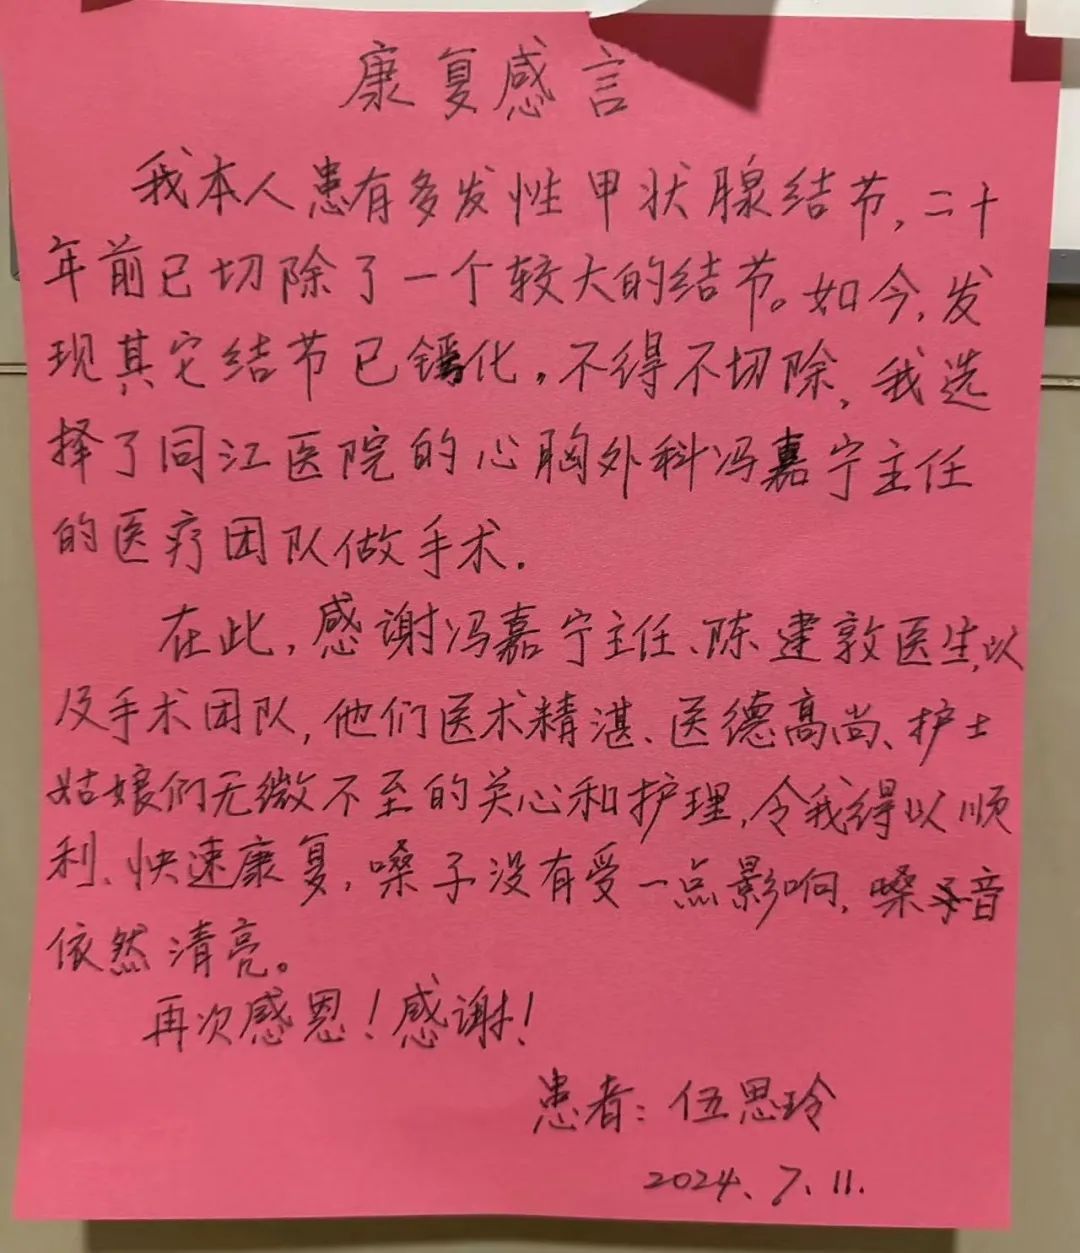 康复感言
我本人患有多发性甲状腺结节,二十
年前已切除了一个较大的结节。如今,发
现其它结节已化,不得不切除,我选
择了同江医院的心胸外科冯嘉宁主任
的医疗团队做手术.
在此,感谢冯嘉宁主任、陈建敦医生,以
及手术团队,他们医术精湛、医德高尚、护士
姑娘们无微不至的关心和护理,令我得以顺
利、快速康复,嗓子没有受一点影响,嗓音
依然清亮。
再次感恩!感谢!
患者:伍思玲
2024、7、11.